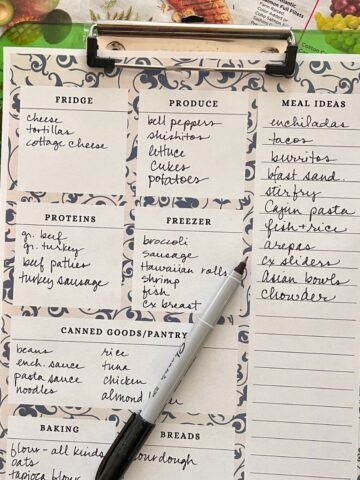 Atlantic
Salmon Full Fillets
FRIDGE
cheese
tortillas
cottage cheese
PRODUCE
bell peppers
shishitos
lettuce
cukes
potatoes
MEAL IDEAS
enchiladas
tacos
burritos
bfast sand.
stir fry
Cajun pasta
fish + rice
arepas
cx sliders
Asian bowls
chowder
PROTEINS
gr. beef
gr. turkey
beef patties
turkey sausage
FREEZER
broccoli
Sausage
Hawaiian rolls
shrimp
fish
cx breast
CANNED GOODS/PANTRY
beans
ench. sauce
pasta sauce
noodles
rice
tuna
chicken
almond
BAKING
flour - all kinds
oats
tapioca flour
BREADS
sourdough